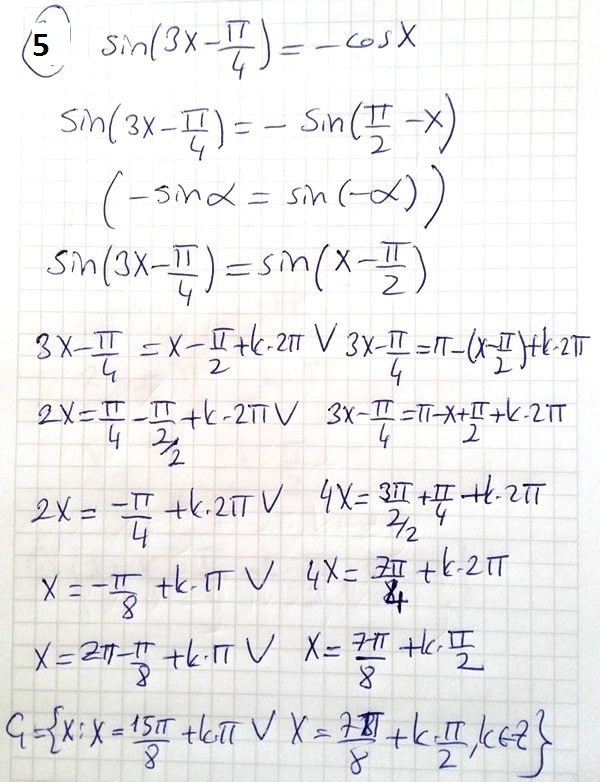 5 sin(3x-π/4) = -cosx
sin(3x-π/4) = - sin(π/2 -x)
(-sinα = sin(-α))
sin(3x-π/4) = sin(x-π/2)
3x-π/4 = x-π/2+k·2π V 3x-π/4=π-(x-π/2)+k·2π
2x=π/4-π/2/2+k·2π V 3x-π/4=π-x+π/2+k·2π
2x= -π/4+k·2π V 4x=3π/2/2+π/4+k·2π
x=-π/8+k·π V 4x= 7π/4+k·2π
x=2π-π/8+k·π V x= 7π/8+k·π/2
G={x:x=15π/8+kπ V x=7π/8+k·π/2, k∈Z}